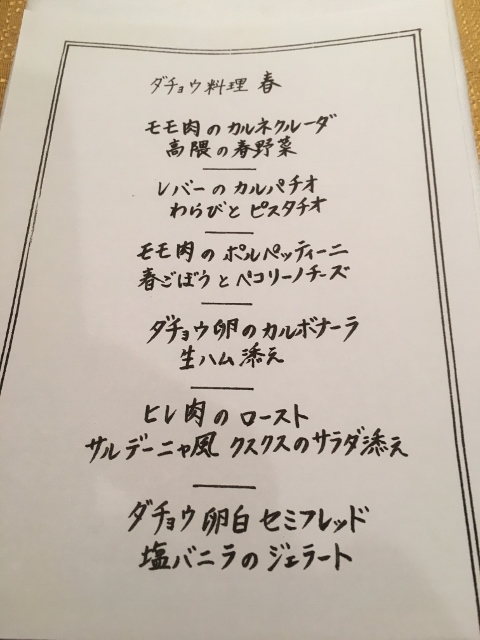 ダチョウ料理 春
モモ肉のカルネクルーダ
高隈の春野菜
レバーのカルパチオ
わらびとピスタチオ
モモ肉のポルペッティーニ
春ごぼうとペコリーノチーズ
ダチョウ卵のカルボナーラ
生ハム添え
ヒレ肉のロースト
サルデーニャ風 クスクスのサラダ添え
ダチョウ卵白セミフレッド
塩バニラのジェラート